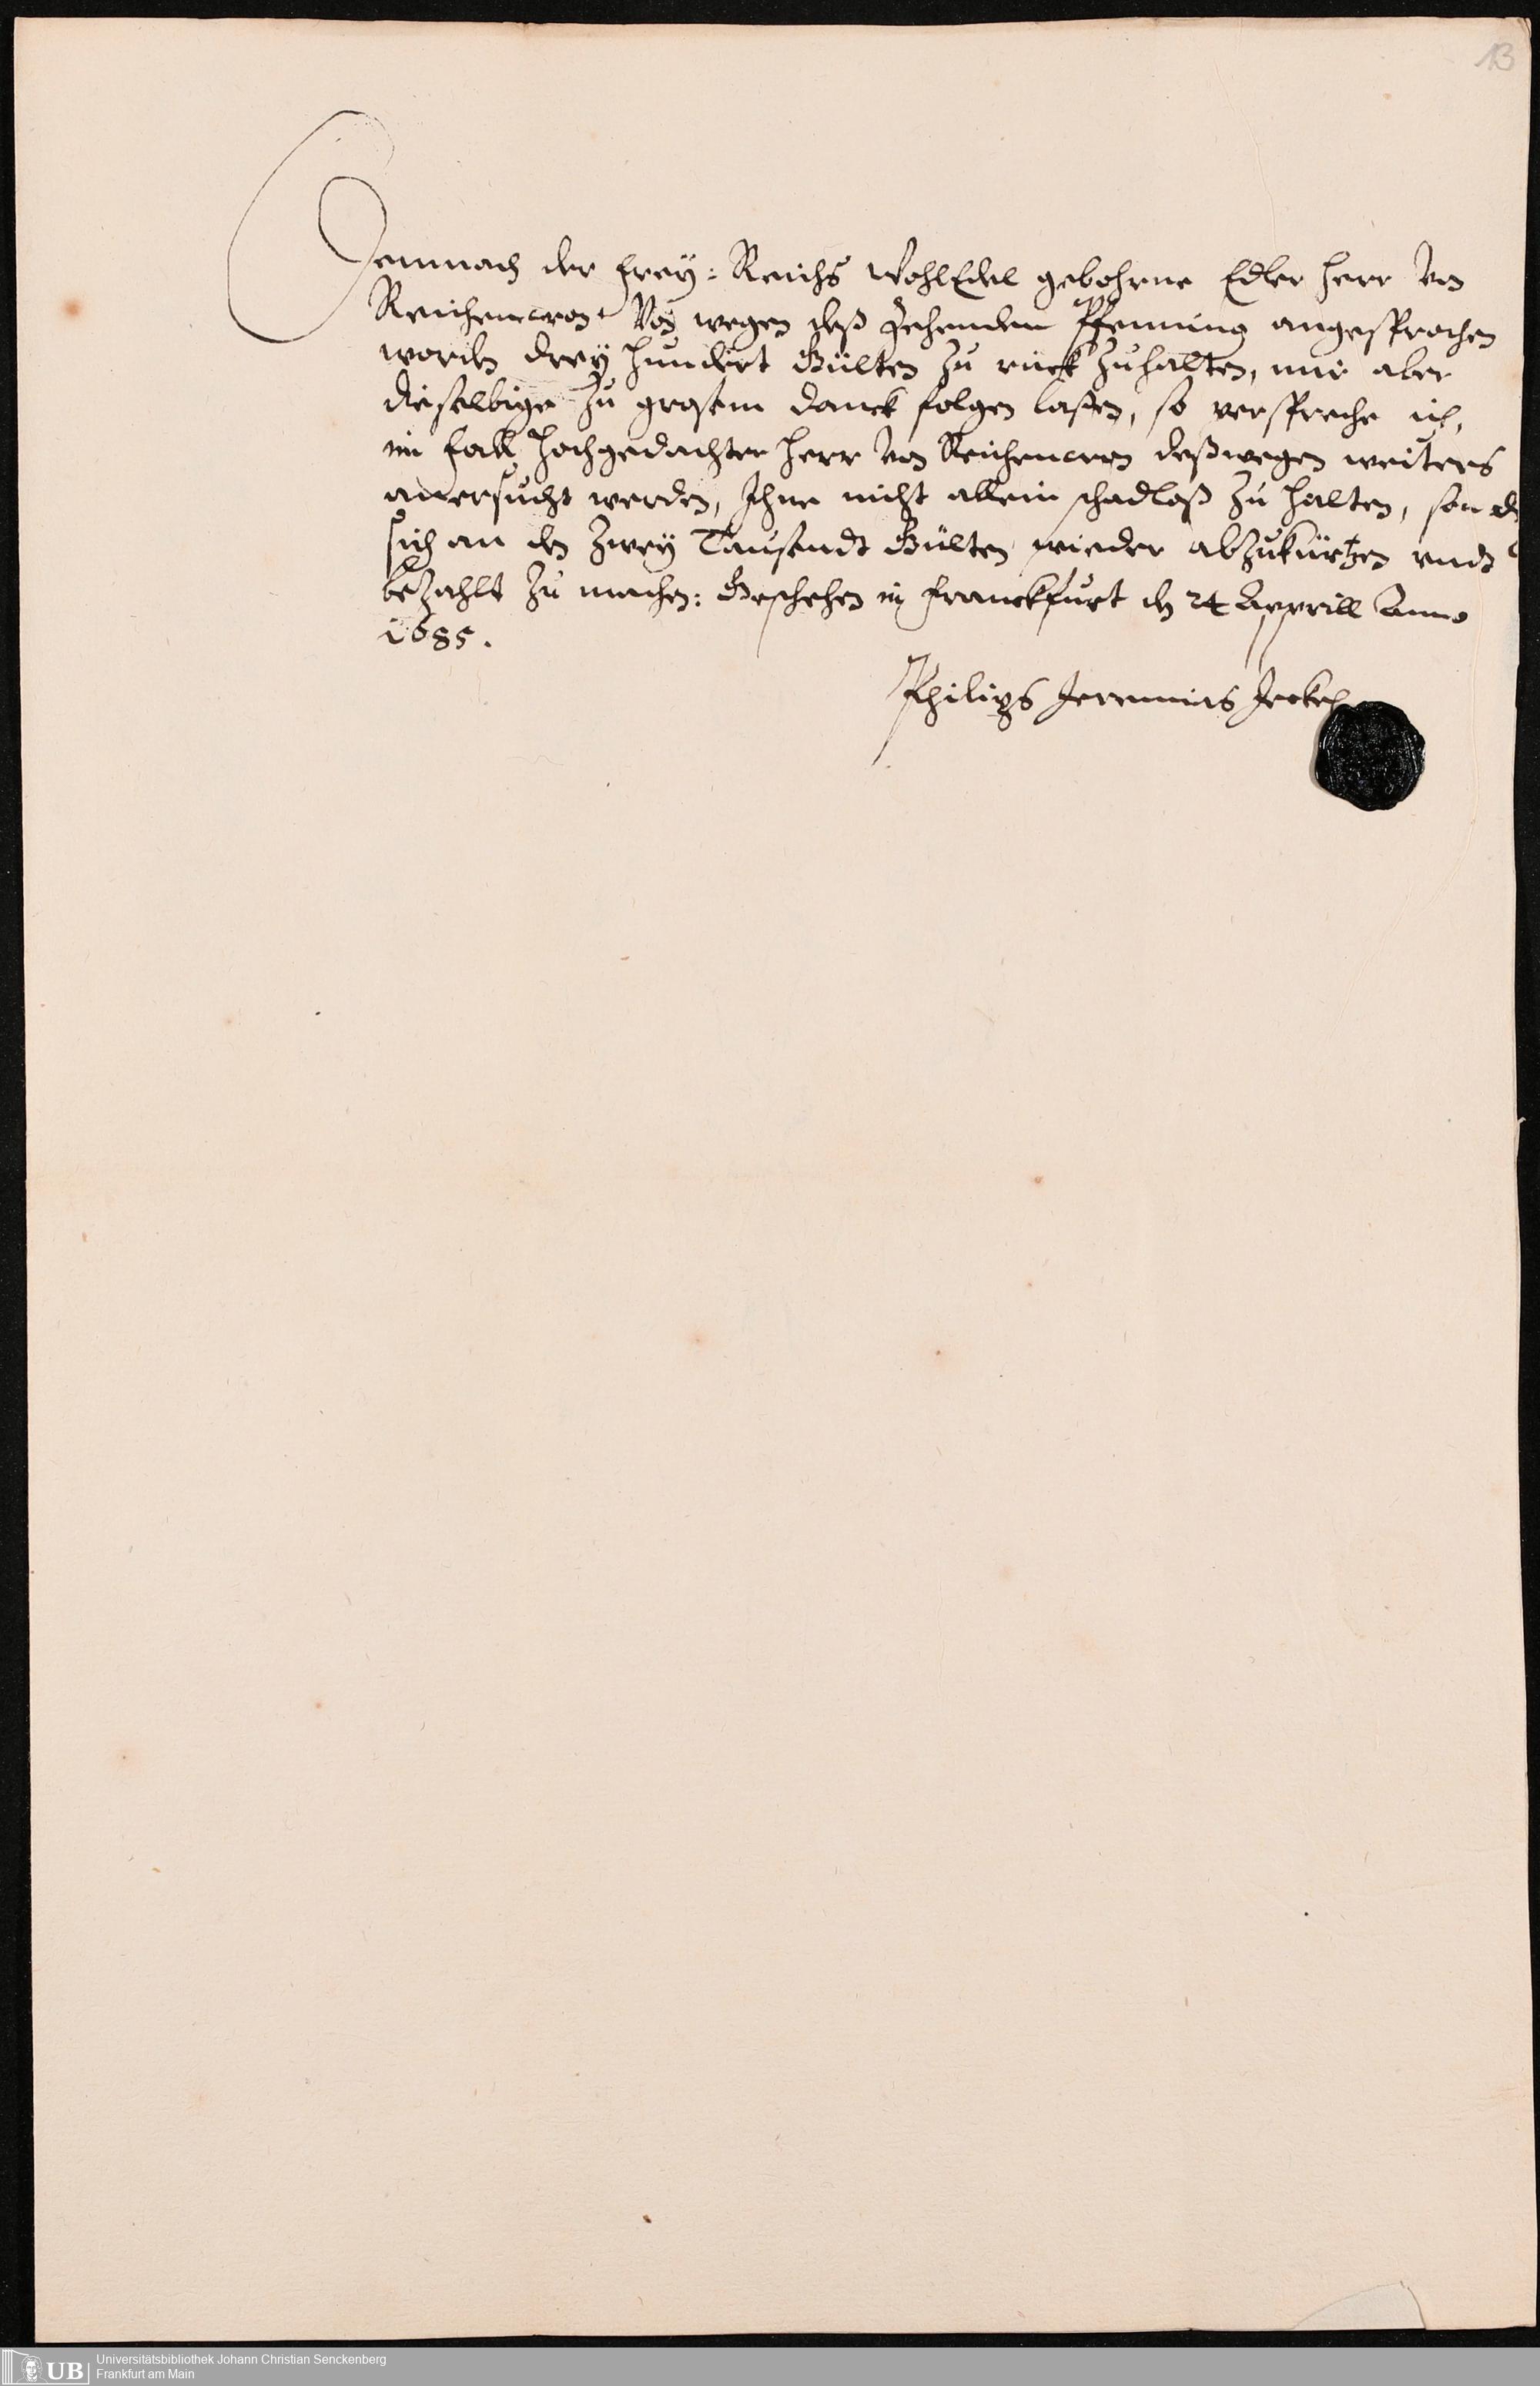 13
Demnach der Frey: Reichs WohlEdel gebohrne Edler Herr von
Reichencron Von wegen deß Zehenden Pfenning angesprochen
worden drey Hundert Gülten zu rück zuhalten, mir aber
dieselbige zu grosem danck folgen laßen, so verspreche ich,
im fall Hochgedachter Herr von Reichencron deßwegen weiters
anersucht werden, Ihne nicht allein schadloß zu halten, sond
sich an den Zwey Tausendt Gülten wieder abzukürtzen undt
bezahlt zu machen: Geschehen in Franckfurt den 24 Apprill Anno
1685.
Philips Jeremias
Universitätsbibliothek Johann Christian Senckenberg
Frankfurt am Main
UB